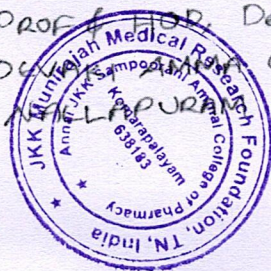 PROF & HOD. De
AMMA
NALLAPURAM
JKK Munirajah Medical Research Foundation, TN, India
Annai JKK Sampoorani Ammal College of Pharmacy
Komarapalayam
638183